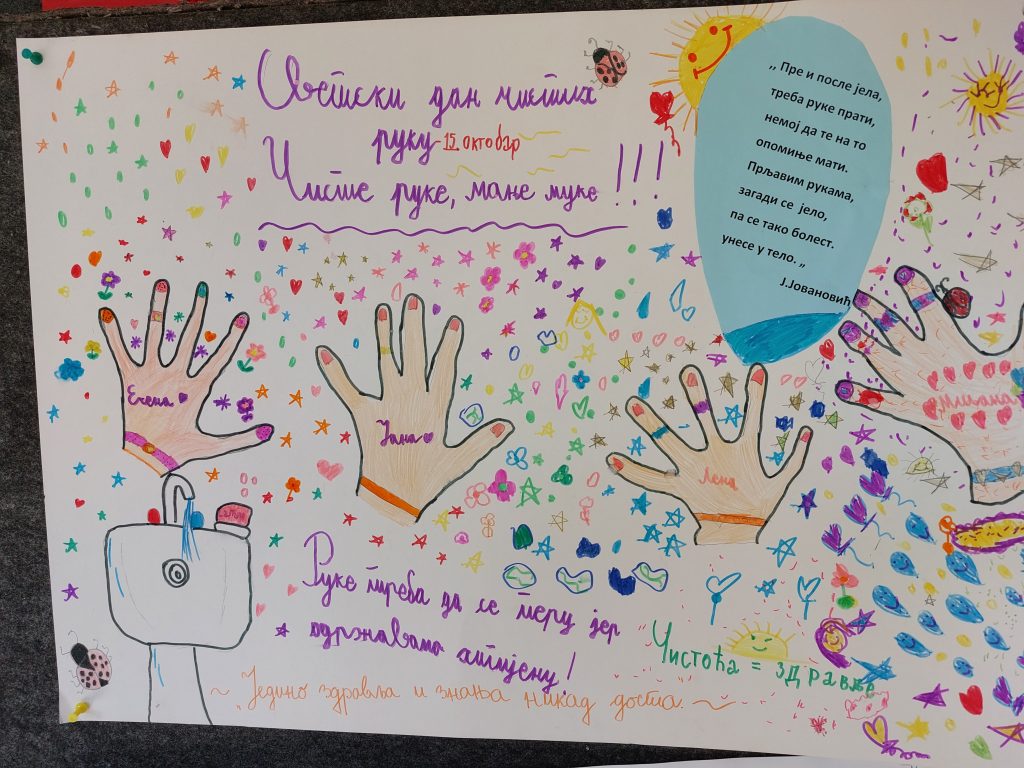 Светски дан чистих
руку - 15. октобар
Чисте руке, мање муке!!!
,, Пре и после јела,
треба руке прати,
немој да те на то
опомиње мати.
Прљавим рукама,
загади се јело,
па се тако болест.
унесе у тело. „
Ј.Јовановић
Елена
Јана
Лена
Милана
Руке треба да се перу јер
одржавамо хигијену!
Чистоћа = здравље
~ „Једино здравља и знања никад доста." ~